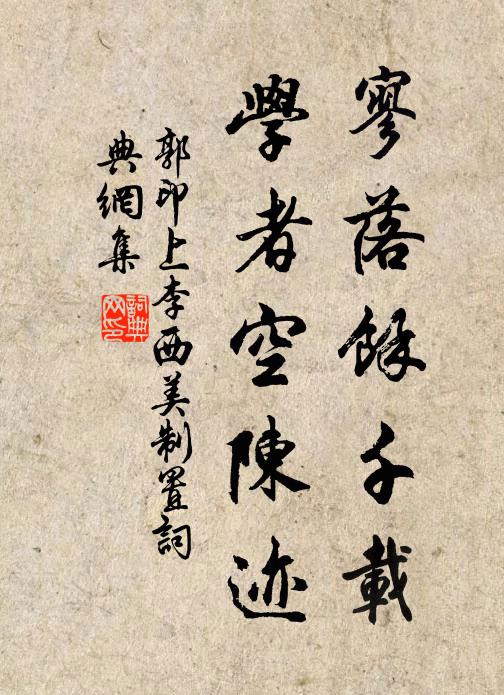 寥落餘千載
學者空陳迹
郭印上李西美制置詞
典網集
詞典
网印